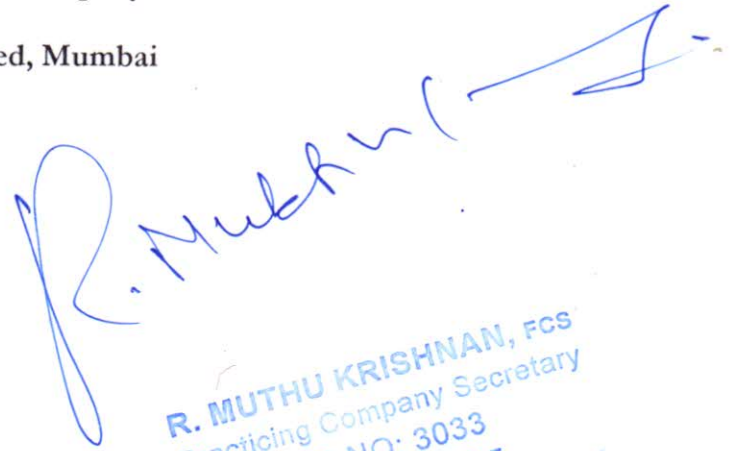 ed, Mumbai
R. Muthu
R. MUTHU KRISHNAN, FCS
Practicing Company Secretary
NO: 3033